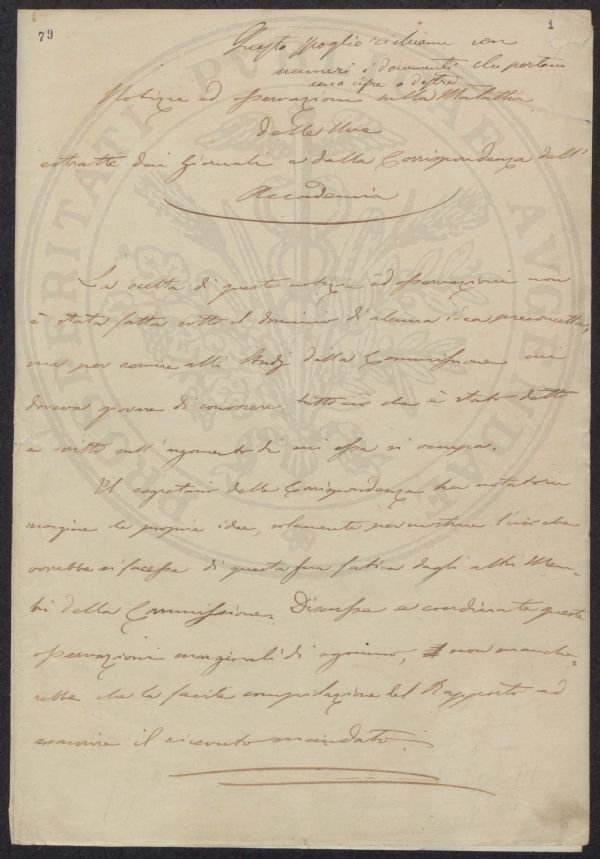 79
1
Questo spoglio richiama con
numeri i documenti che portano
una cifra a destra
Notizie ed osservazioni sulla Malattia
delle Uve
estratte dai Giornali e dalla Corrispondenza dell'
Accademia
La scelta di queste notizie ed osservazioni non
è stata fatta sotto il dominio di alcuna idea preconcetta,
ma per servire alli Studj della Commissione cui
doveva giovare di conoscere tutto ciò che è stato detto
e scritto sull'argomento di cui essa si occupa.
Il segretario delle Corrispondenze ha notato in
margine le proprie idee, solamente per mostrare l'uso che
vorrebbe si facesse di questa sua fatica dagli altri Mem-
bri della Commissione. Discusse e coordinate queste
osservazioni marginali di ognuno, non manche-
rebbe che la facile compilazione del Rapporto ad
esaurire il ricevuto mandato.
PROSPERITATI PUBLICAE AUGENDAE